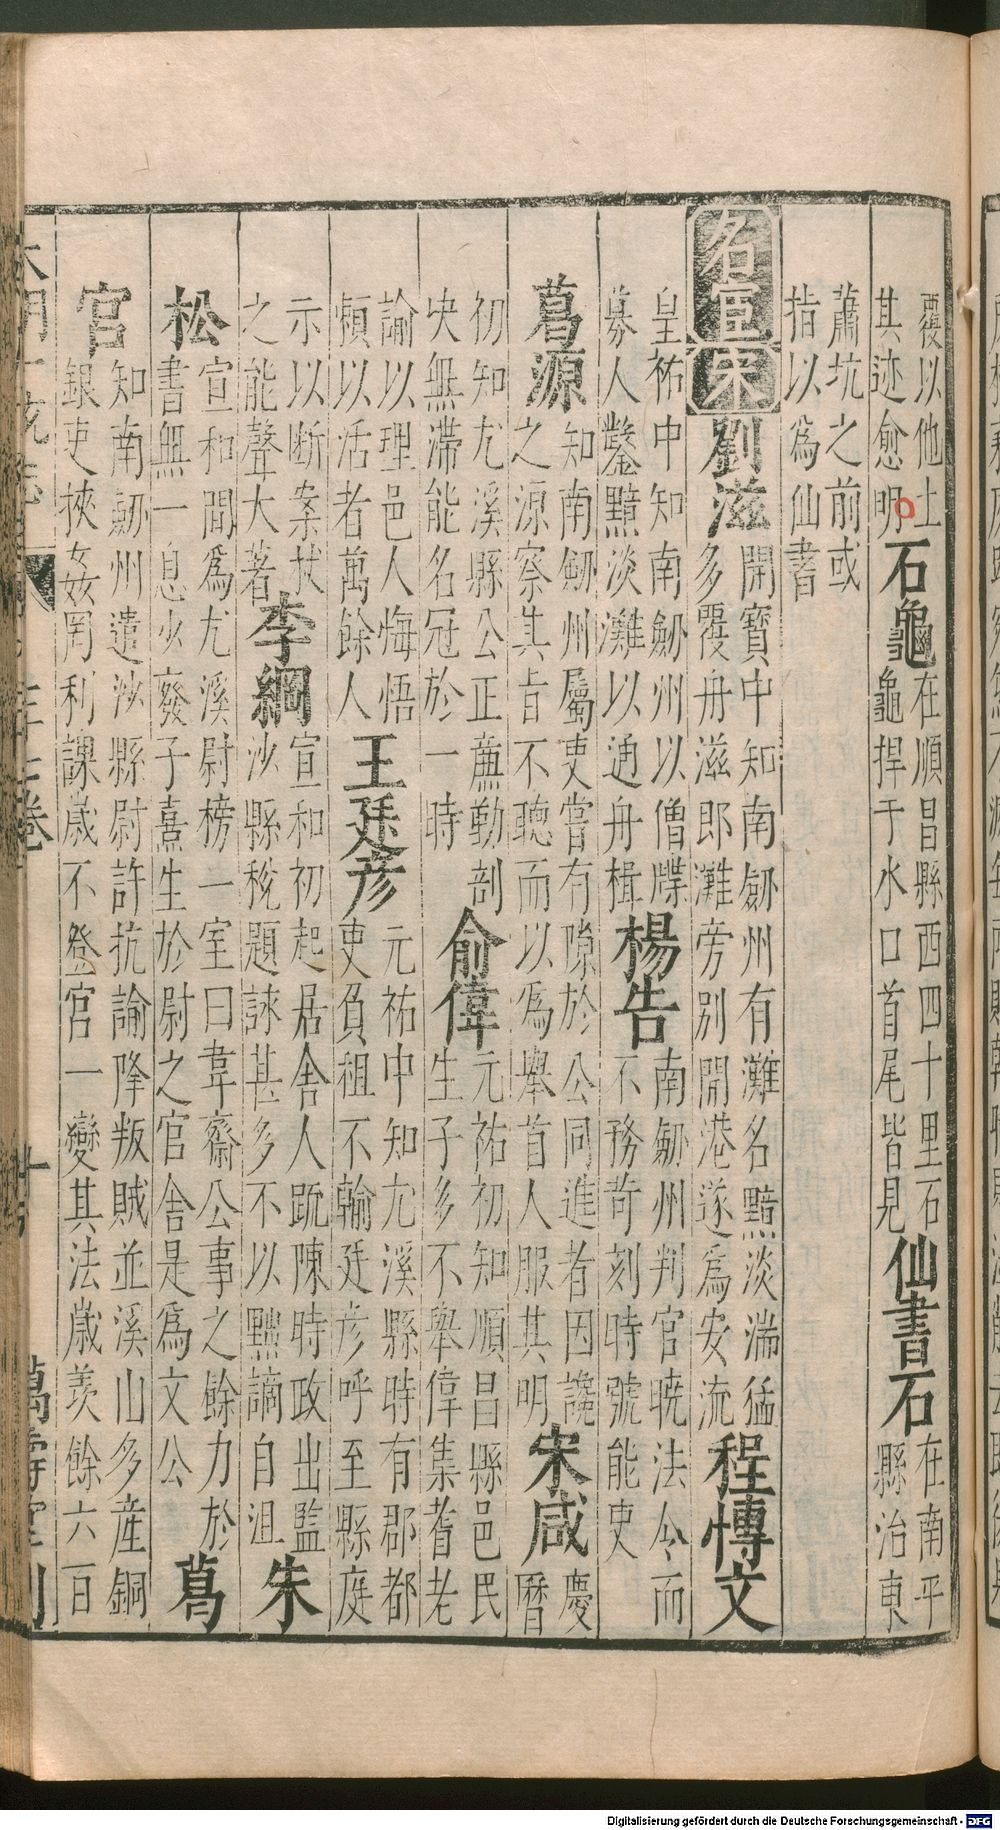 覆以他土
其迹愈明
石龜
在順昌縣西四十里石
龜捍于水口首尾皆見
仙書石
在南平
縣治東
蕭坑之前或
指以爲仙書
名宦宋
劉滋
開寶中知南劒州有灘名黯淡湍猛
多覆舟滋郎灘旁別開港遂爲安流
程博文
皇祐中知南劒州以僧牒
募人鑿黯淡灘以通舟楫
楊告
南劒州判官曉法令而
不務苛刻時號能吏
葛源
知南劒州屬吏嘗有隙於公同進者因讒
之源察其旨不聽而以爲舉首人服其明
宋咸
慶
曆
初知尤溪縣公正廉勤剖
决無滯能名冠於一時
俞偉
元祐初知順昌縣邑民
生子多不舉偉集耆老
諭以理邑人悔悟
頼以活者萬餘人
王廷彥
元祐中知尤溪縣時有郡都
吏負租不輸廷彥呼至縣庭
示以断案杖
之能聲大著
李綱
宣和初起居舍人䟽陳時政出監
沙縣稅題詠甚多不以黜謫自沮
朱
松
宣和間爲尤溪尉榜一室曰韋齋公事之餘力於
書無一息少廢子熹生於尉之官舍是爲文公
葛
宮
知南劒州遣沙縣尉許抗諭降叛賊並溪山多産銅
銀吏挾姦罔利課歲不登官一變其法歲羨餘六百
Digitalisierung gefördert durch die Deutsche Forschungsgemeinschaft - DFG